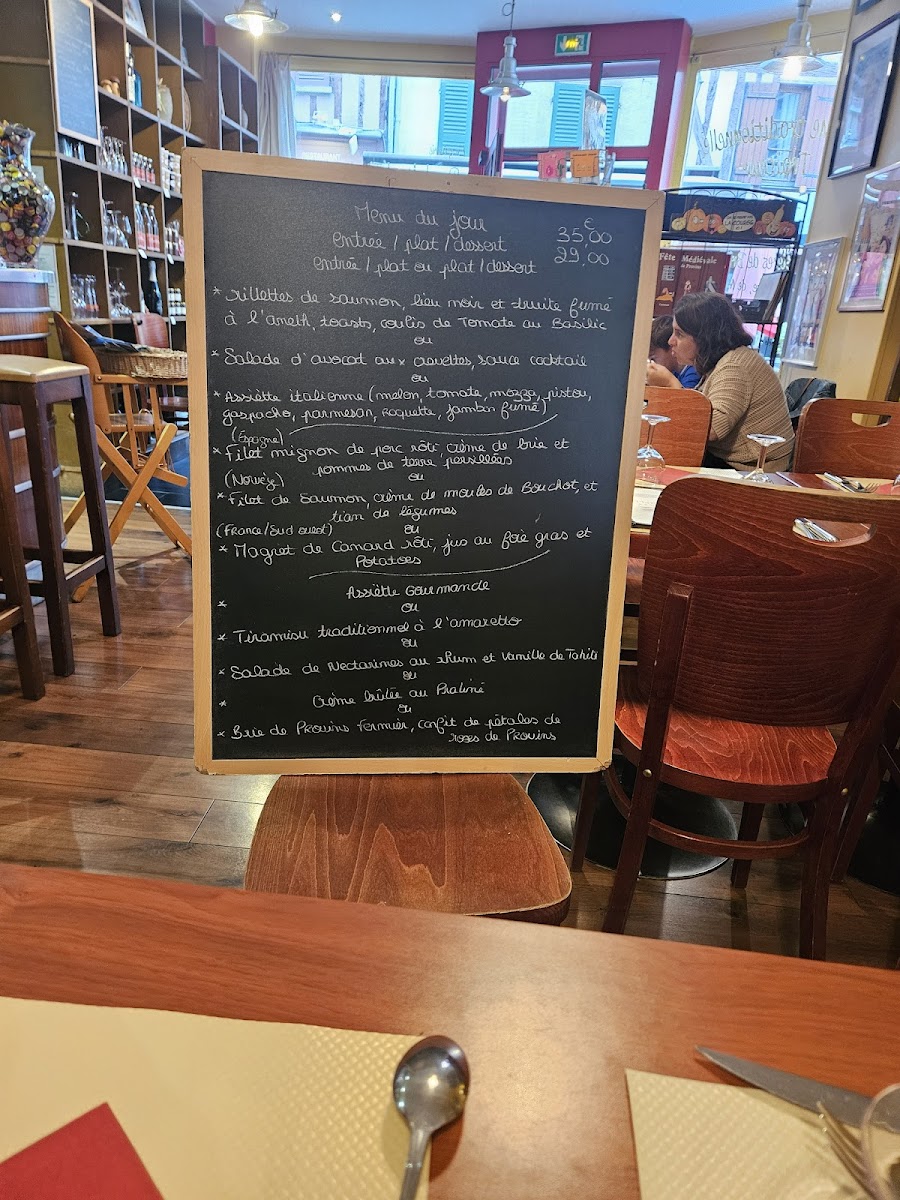 Menu du jour €
entrée / plat / dessert 35,00
entrée / plat ou plat / dessert 29,00
* rillettes de saumon, lieu noir et truite fumé
à l'aneth, toasts, coulis de Tomate au Basilic
ou
* Salade d'avocat aux crevettes, sauce cocktail
ou
* Assiette italienne (melon, tomate, mozza, pistou,
gaspacho, parmesan, roquette, jambon fumé)
(Espagne)
* Filet mignon de porc rôti, crème de brie et
pommes de terre persillées
(Novège) ou
* Filet de Saumon, crème de moules de Bouchot, et
tian de légumes
(France/Sud ouest) ou
* Magret de Canard rôti, jus au foie gras et
Potatoes
Assiette Gourmande
*
ou
* Tiramisu traditionnel à l'amaretto
ou
* Salade de Nectarines au rhum et Vanille de Tahiti
ou
* Crème brûlée au Praliné
ou
* Brie de Provins fermier, confit de pétales de
roses de Provins
Fête Médiévale
de Provins